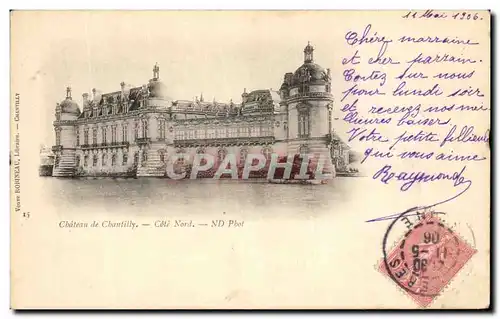 11 Mai 1906.
Chère marraine
et cher parrain.
Comtez sur nous
pour lundi soir
et recevez nos me
illeures baiser
Votre petite fillieule
qui vous aime
Raymonde
Veuve BOBINEAU, Libraire. — CHANTILLY
CPAPHIL.com
15
Château de Chantilly. — Côté Nord. — ND Phot
11 -5
06